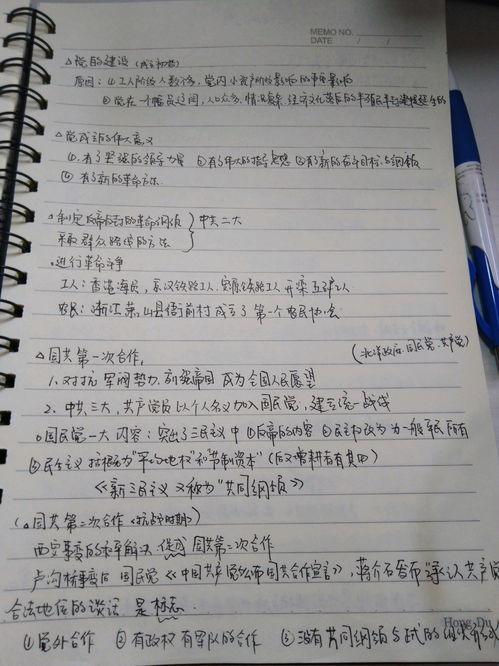 MEMO NO.
DATE / /
△党的建设（成立初期）
原因：①工人阶级人数少，党内小资产阶级影响的严重影响
②党在一个幅员辽阔，人口众多，情况复杂，经济文化落后的半殖民半封建
△党成立的伟大意义
①.有了坚强的领导力量 ②有了伟大的指导思想 ③有了新的奋斗目标，纲领
④有了新的革命方法
制定反帝反封的革命纲领
中共二大
采取群众路线的方法
进行革命斗争
工人：香港海员，京汉铁路工人，安源铁路工人 开滦五矿工人
农民：浙江萧山县衙前村成立了第一个农民协会
（北洋政府.国民党.共产党）
△国共第一次合作
1.对抗军阀势力，列强帝国 成为全国人民愿望
2.中共三大，共产党员以个人名义加入国民党，建立统一战线
国民党一大 内容：突出了三民主义中 ①反帝的内容 ②民主权改为为一般平民所有
③民生主义 概为"平均地权"和"节制资本"（后又增耕者有其田）
《新三民主义 又称为"共同纲领"》
（△国共第二次合作《抗战时期》
西安事变的和平解决，促成国共第二次合作
卢沟桥事变后 国民党《中国共产党公布国共合作宣言》，蒋介石发布"承认共产党
合法地位的谈话 是标志
①党外合作 ②有政权有军队的合作 ③没有共同纲领
Hong Du